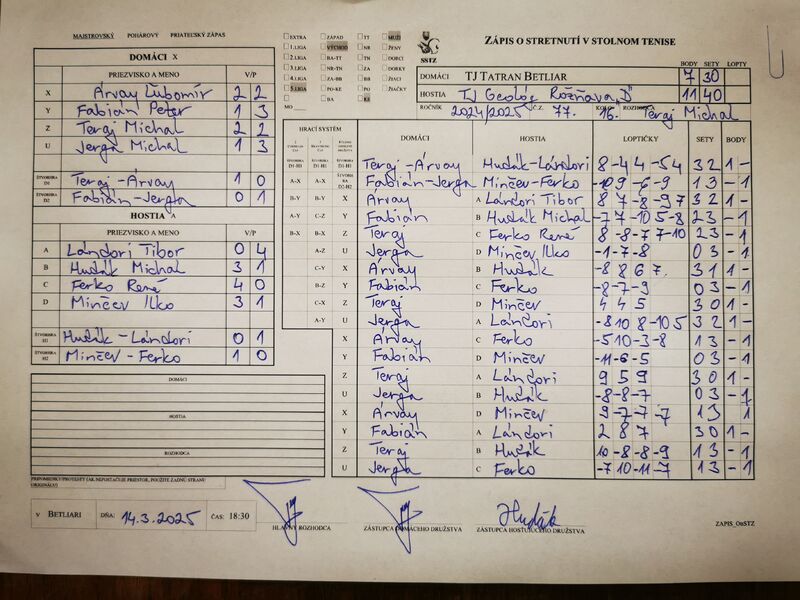 MAJSTROVSKÝ POHÁROVÝ PRIATEĽSKÝ ZÁPAS
DOMÁCI X
PRIEZVISKO A MENO V/P
X Árvay Ľubomír 2 2
Y Fabián Peter 1 3
Z Teraj Michal 2 2
U Jerga Michal 1 3
ŠTVORHRA D1 Teraj - Árvay 1 0
ŠTVORHRA D2 Fabián - Jerga 0 1
HOSTIA A
PRIEZVISKO A MENO V/P
A Lándori Tibor 0 4
B Hudák Michal 3 1
C Ferko René 4 0
D Minčev Ilko 3 1
ŠTVORHRA H1 Hudák - Lándori 0 1
ŠTVORHRA H2 Minčev - Ferko 1 0
DOMÁCI
HOSTIA
ROZHODCA
PRIPOMIENKY/PROTESTY (AK NEPOSTAČUJE PRIESTOR, POUŽITE ZADNÚ STRANU ORIGINÁLU)
V BETLIARI DŇA: 14.3.2025 ČAS: 18:30
EXTRA ZÁPAD TT MUŽI
1.LIGA VÝCHOD NR ŽENY
2.LIGA BA-TT TN DORCI
3.LIGA NR-TN ZA DORKY
4.LIGA ZA-BB BB ŽIACI
5.LIGA PO-KE PO ŽIAČKY
BA KE
MO
SSTZ
ZÁPIS O STRETNUTÍ V STOLNOM TENISE
BODY SETY LOPTY
DOMÁCI TJ TATRAN BETLIAR 7 30
HOSTIA TJ Geológ Rožňava „D" 11 40
ROČNÍK 2024/2025 Č.Z. 77. KOLO 16. ROZHODCA Teraj Michal
HRACÍ SYSTÉM
DOMÁCI HOSTIA LOPTIČKY SETY BODY
ŠTVORHRA D1-H1 Teraj - Árvay Hudák - Lándori 8 -4 4 -5 4 3 2 1 -
A-X A-X Fabián - Jerga Minčev - Ferko -10 9 -6 -9 1 3 - 1
B-Y B-Y X Árvay A Lándori Tibor 8 7 -8 -9 7 3 2 1 -
A-Y C-Z Y Fabián B Hudák Michal -7 7 -10 5 -8 2 3 - 1
B-X B-X Z Teraj C Ferko René 8 -8 -7 7 -10 2 3 - 1
A-Z U Jerga D Minčev Ilko -1 -7 -8 0 3 - 1
C-Y X Árvay B Hudák -8 8 6 7 3 1 1 -
B-Z Y Fabián C Ferko -8 -7 -9 0 3 - 1
C-X Z Teraj D Minčev 4 4 5 3 0 1 -
A-Y U Jerga A Lándori -8 10 8 -10 5 3 2 1 -
X Árvay C Ferko -5 10 -3 -8 1 3 - 1
Y Fabián D Minčev -11 -6 -5 0 3 - 1
Z Teraj A Lándori 9 5 9 3 0 1 -
U Jerga B Hudák -8 -8 -7 0 3 - 1
X Árvay D Minčev 9 -7 -7 -7 1 3 1
Y Fabián A Lándori 2 8 7 3 0 1 -
Z Teraj B Hudák 10 -8 -8 -9 1 3 - 1
U Jerga C Ferko -7 10 -11 -7 1 3 - 1
Hudák
HLAVNÝ ROZHODCA ZÁSTUPCA DOMÁCEHO DRUŽSTVA ZÁSTUPCA HOSŤUJÚCEHO DRUŽSTVA
ZAPIS_OsSTZ